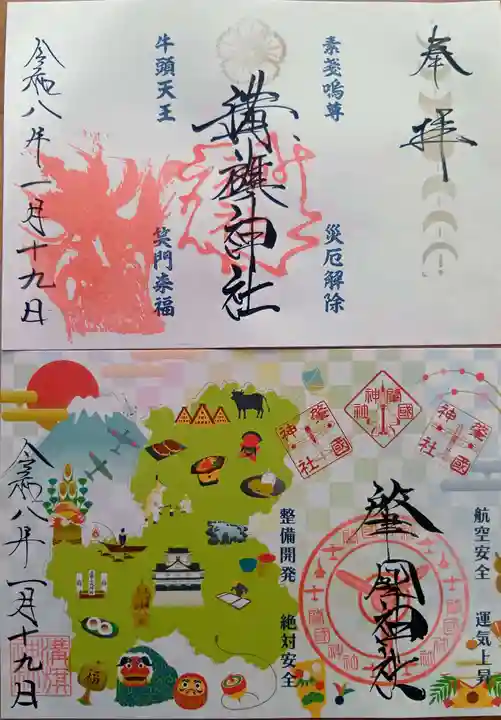 奉拝
素戔嗚尊
災厄解除
溝旗神社
牛頭天王
笑門来福
令和八年一月十九日
航空安全
運気上昇
肇國神社
整備開発
絶対安全
肇國神社
肇國神社
肇國神社
令和八年一月十九日
福